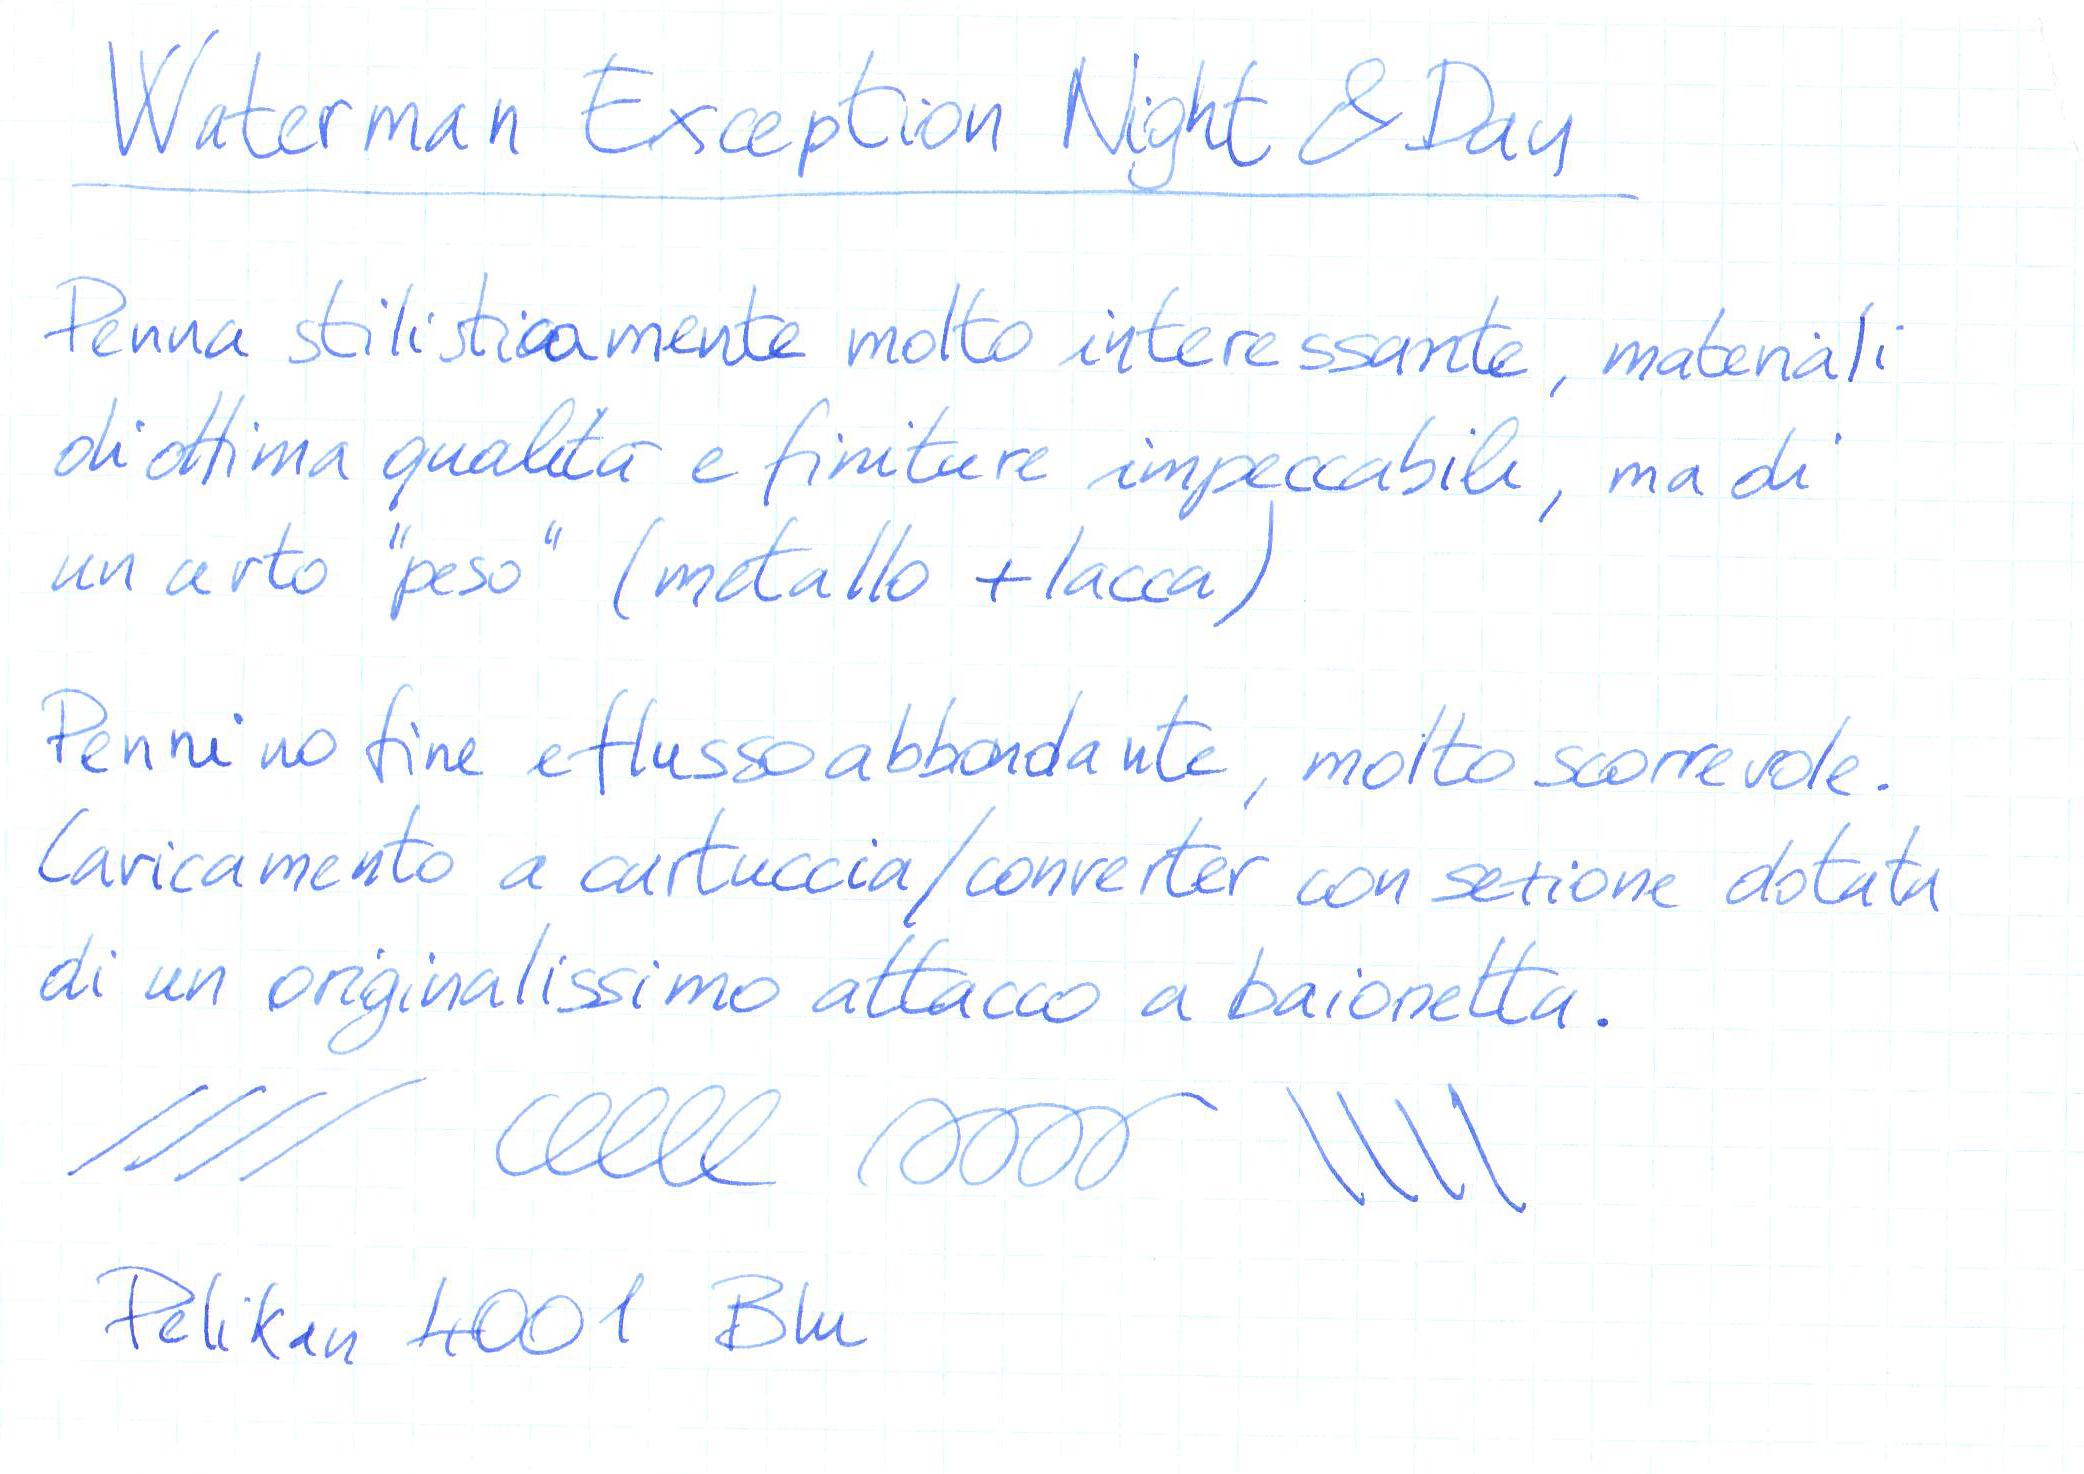 Waterman Exception Night & Day
Penna stilisticamente molto interessante, materiali
di ottima qualità e finiture impeccabili, ma di
un certo "peso" (metallo + lacca)
Pennino fine e flusso abbondante, molto scorrevole.
Caricamento a cartuccia/converter con sezione dotata
di un originalissimo attacco a baionetta.
Pelikan 4001 Blu